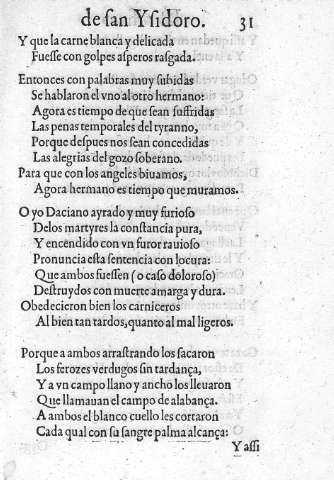 de san Ysidoro. 31
Y que la carne blanca y delicada
Fuesse con golpes asperos rasgada.
Entonces con palabras muy subidas
Se hablaron el vno al otro hermano:
Agora es tiempo de que sean suffridas
Las penas temporales del tyranno,
Porque despues nos sean concedidas
Las alegrias del gozo soberano.
Para que con los angeles biuamos,
Agora hermano es tiempo que muramos.
O yo Daciano ayrado y muy furioso
Delos martyres la constancia pura,
Y encendido con vn furor rauioso
Pronuncia esta sentencia con locura:
Que ambos fuessen (o caso doloroso)
Destruydos con muerte amarga y dura.
Obedecieron bien los carniceros
Al bien tan tardos, quanto al mal ligeros.
Porque a ambos arrastrando los sacaron
Los ferozes verdugos sin tardança,
Y a vn campo llano y ancho los lleuaron
Que llamauan el campo de alabança.
A ambos el blanco cuello les cortaron
Cada qual con su sangre palma alcança:
Y assi